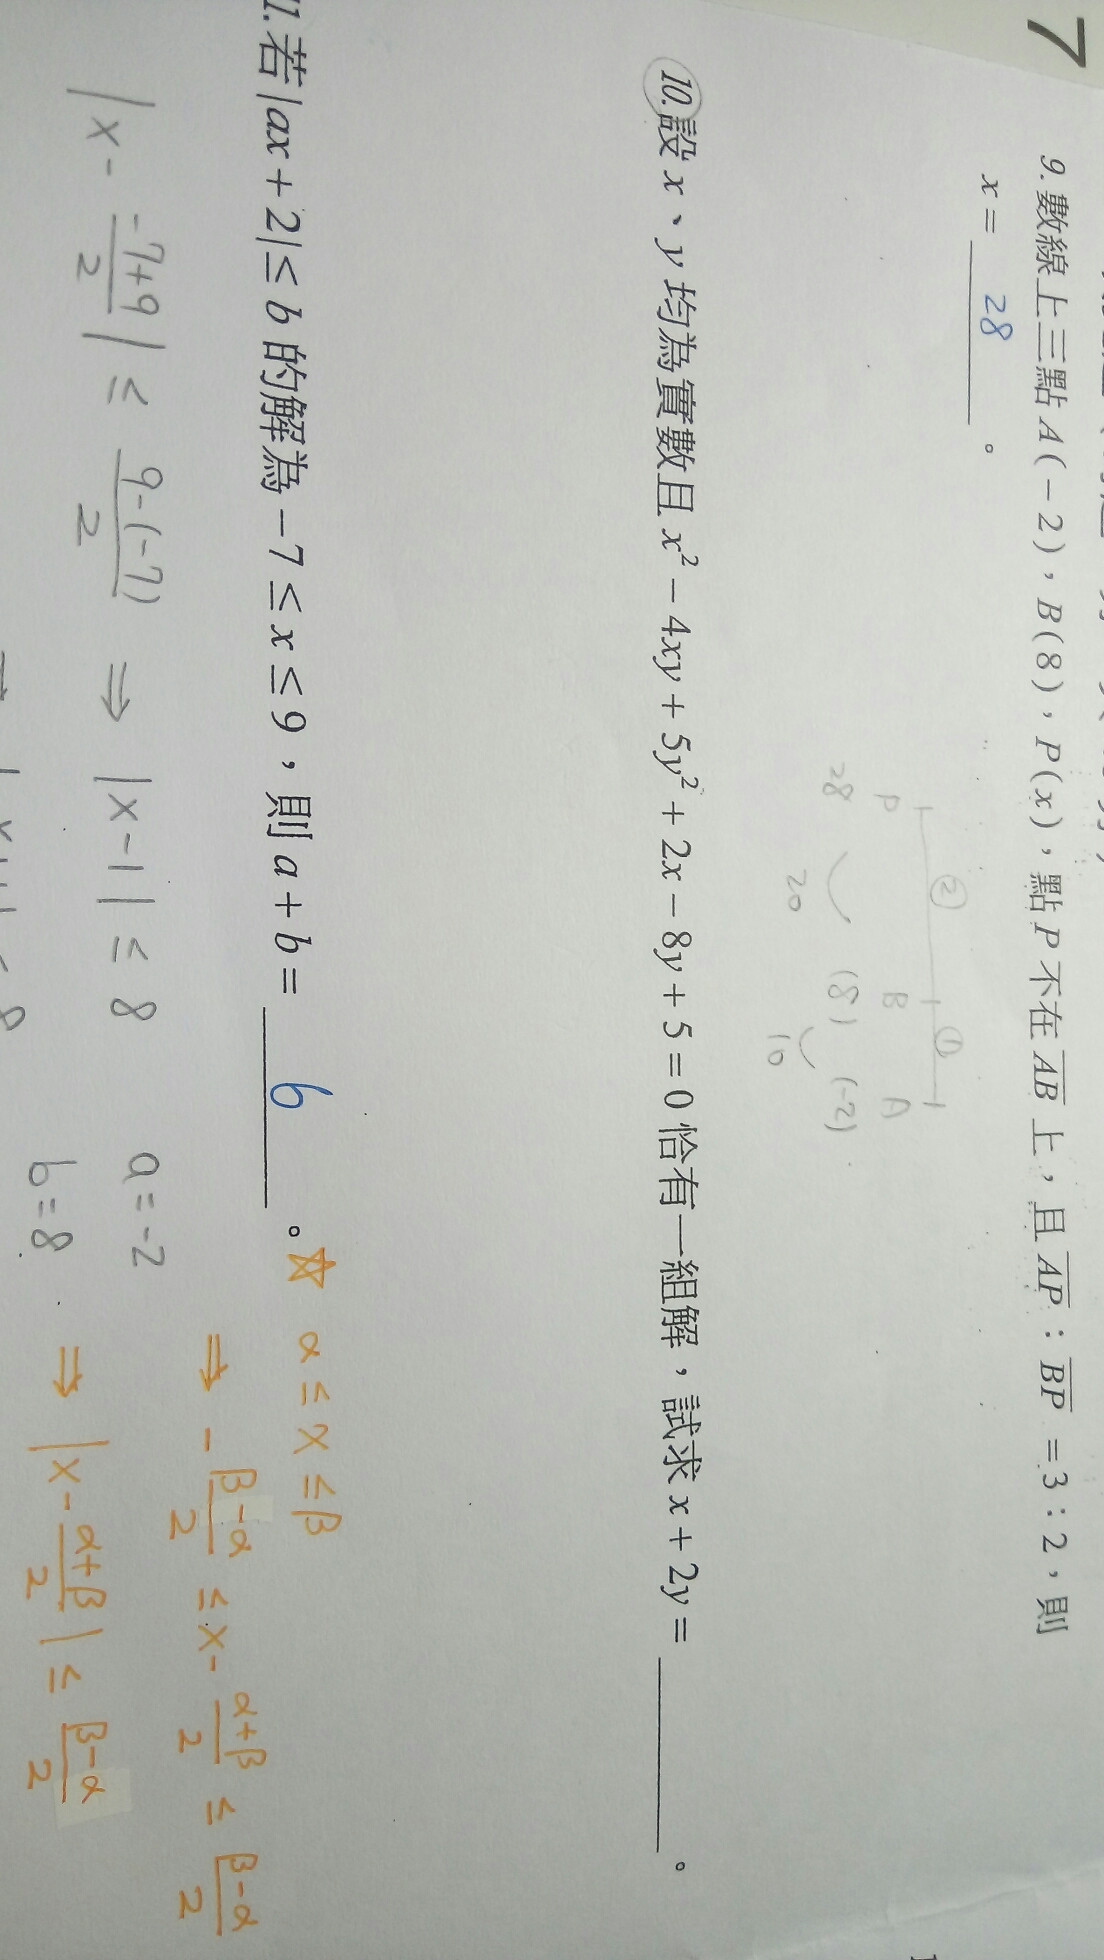 7
9. 數線上三點 A(-2),B(8),P(x),點 P 不在 \overline{AB} 上,且 \overline{AP}:\overline{BP} = 3:2,則
x = 28 。
② ①
P B A
28 (8) (-2)
20 10
10. 設 x、y 均為實數且 x² - 4xy + 5y² + 2x - 8y + 5 = 0 恰有一組解,試求 x + 2y = ______。
11. 若 |ax + 2| ≤ b 的解為 -7 ≤ x ≤ 9,則 a + b = 6 。☆ α ≤ x ≤ β
⇒ -\frac{β-α}{2} ≤ x - \frac{α+β}{2} ≤ \frac{β-α}{2}
|x - \frac{-7+9}{2}| ≤ \frac{9-(-7)}{2} ⇒ |x-1| ≤ 8 a=-2
b=8
⇒ |x - \frac{α+β}{2}| ≤ \frac{β-α}{2}